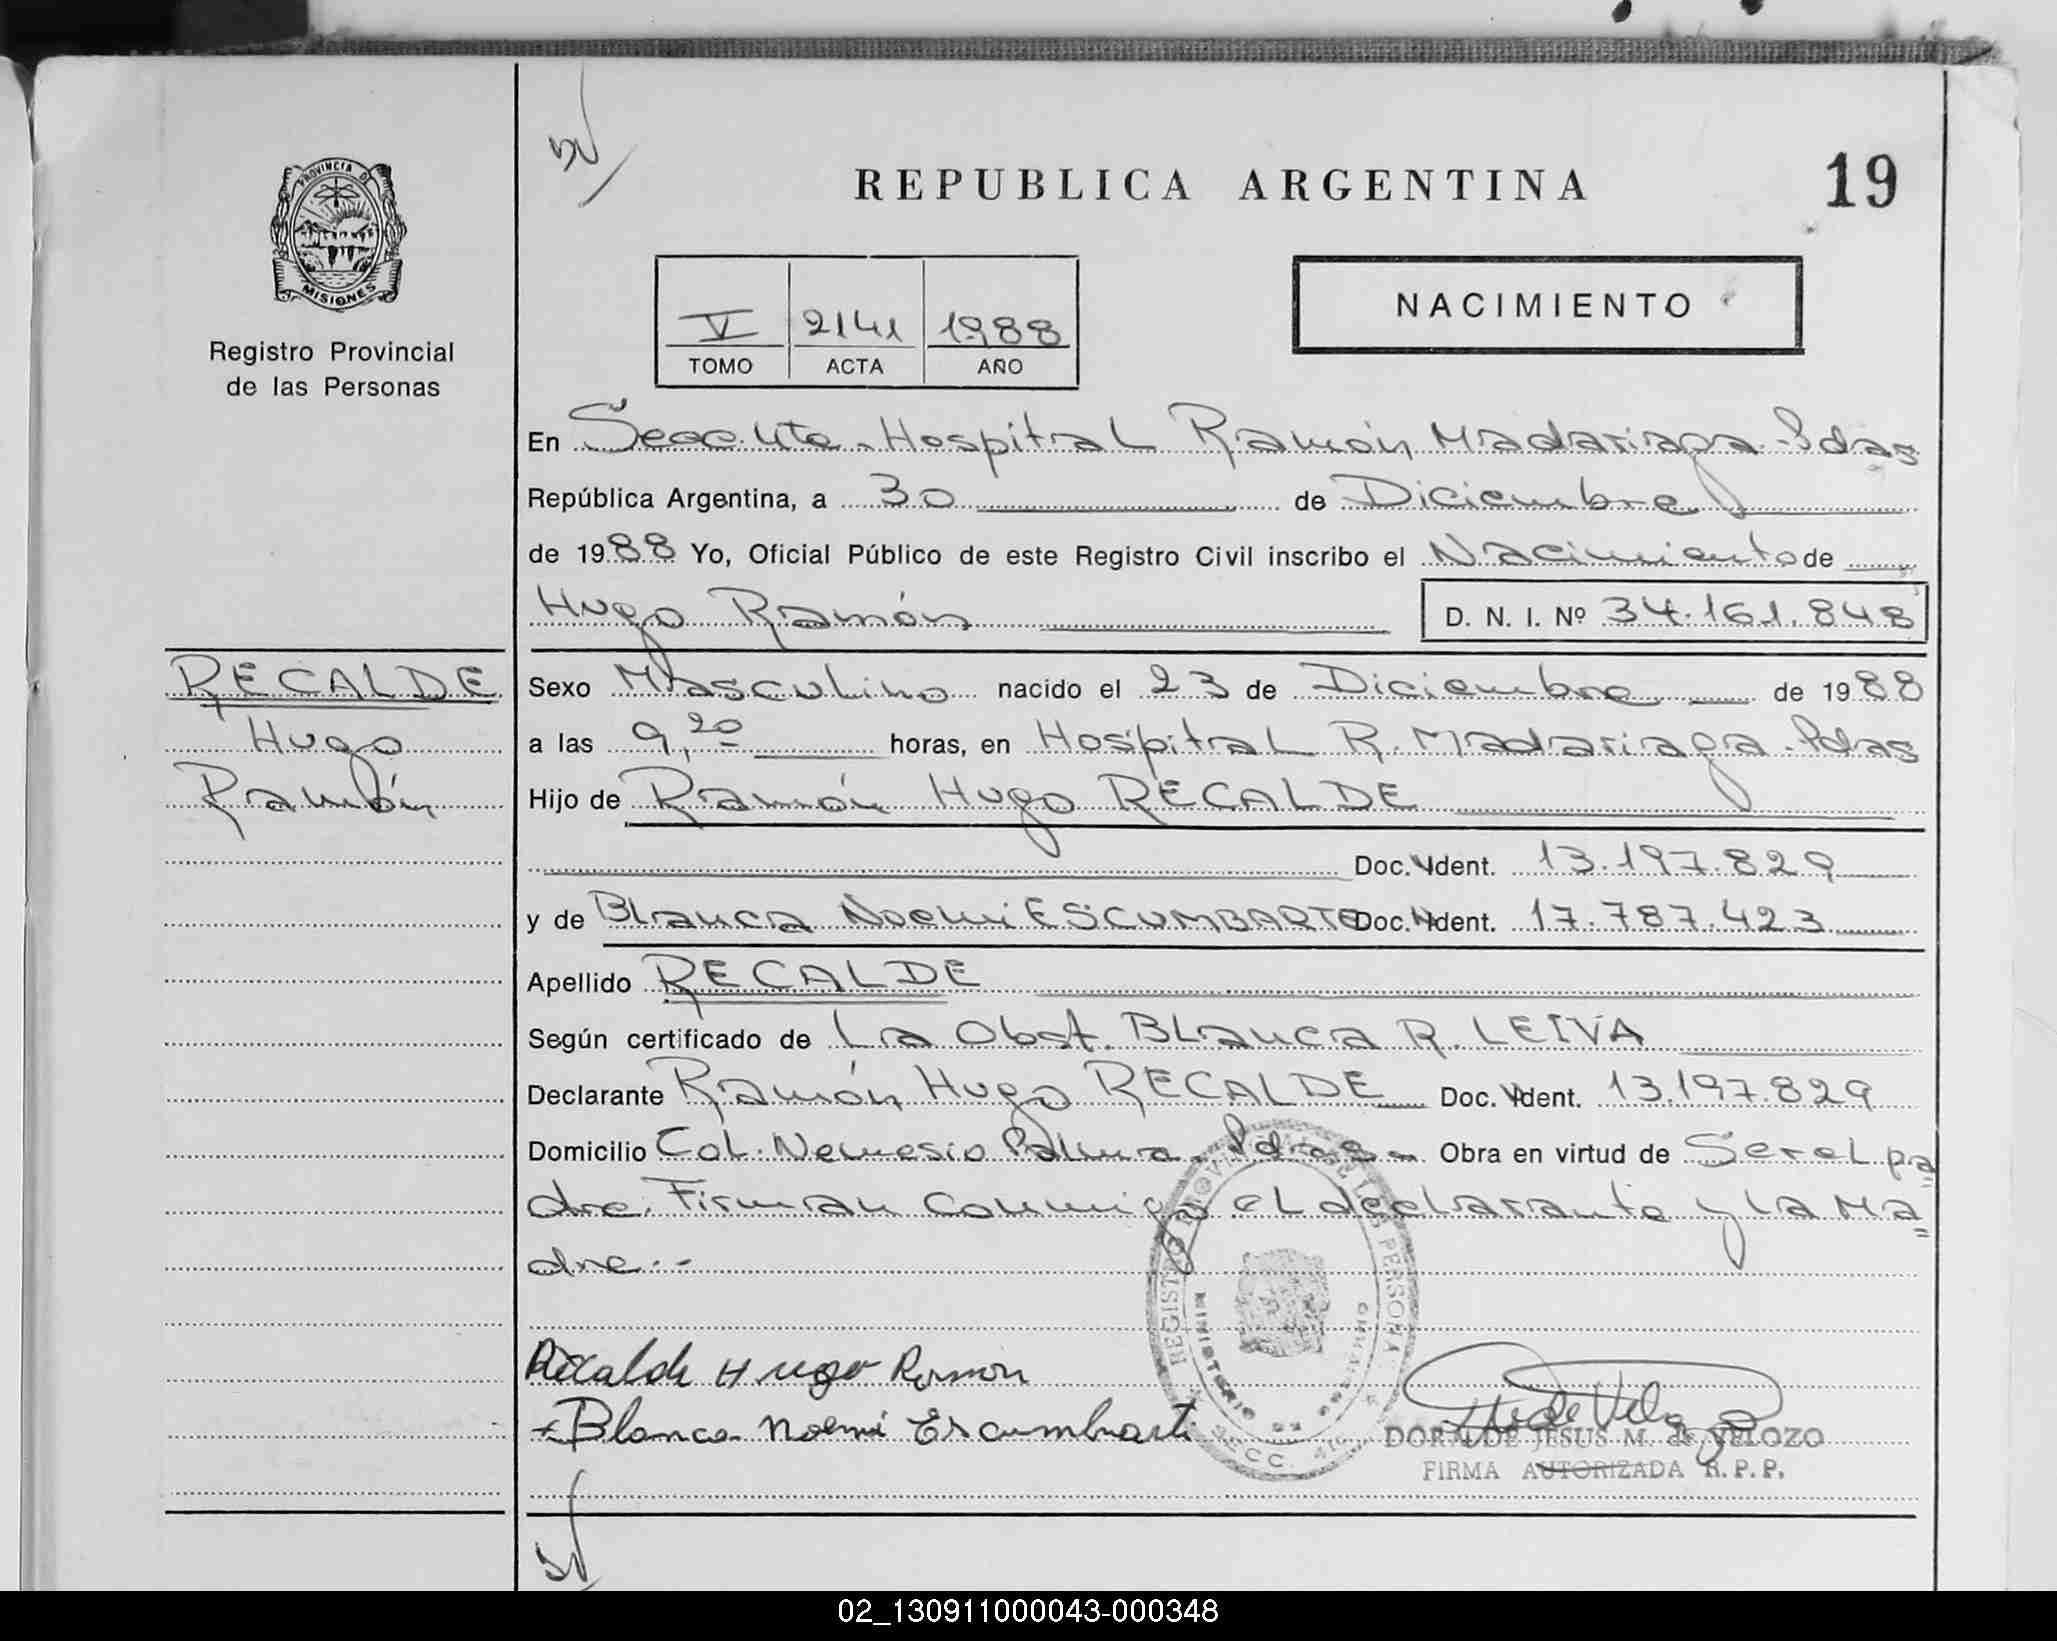 REPUBLICA ARGENTINA
19
PROVINCIA DE
MISIONES
Registro Provincial
de las Personas
NACIMIENTO
V 2141 1988
TOMO ACTA AÑO
En Secc. 4ta. Hospital Ramón Madariaga - Pdas
República Argentina, a 30 de Diciembre
de 1988 Yo, Oficial Público de este Registro Civil inscribo el Nacimiento de
Hugo Ramón D. N. I. Nº 34.161.848
RECALDE
Hugo
Ramón
Sexo Masculino nacido el 23 de Diciembre de 1988
a las 9,20 horas, en Hospital R. Madariaga - Pdas
Hijo de Ramón Hugo RECALDE
Doc. Ident. 13.197.829
y de Blanca Noemi ESCUMBARTE Doc. Ident. 17.787.423
Apellido RECALDE
Según certificado de La Obst. Blanca R. LEIVA
Declarante Ramón Hugo RECALDE Doc. Ident. 13.197.829
Domicilio Col. Nemesio Palma. Pdas - Obra en virtud de Ser el pa
dre. Firman conmigo el declarante y la Ma=
dre.-
Recalde Hugo Ramon
Blanca Noemi Escumbarti
DORA DE JESUS M. de VELOZO
FIRMA AUTORIZADA R.P.P.
02_130911000043-000348